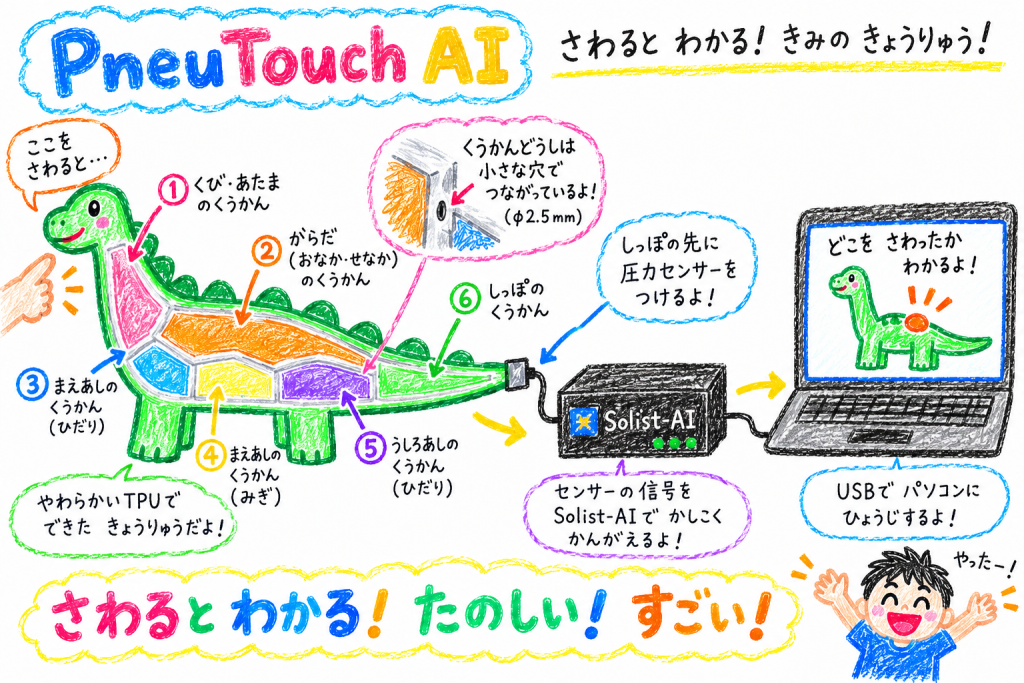 PneuTouch AI
さわると わかる! きみの きょうりゅう!
ここを
さわると…
① くび・あたま
のくうかん
② からだ
(おなか・せなか)
のくうかん
くうかんどうしは
小さな穴で
つながっているよ!
(φ2.5mm)
⑥ しっぽの
くうかん
しっぽの先に
圧力センサーを
つけるよ!
どこを さわったか
わかるよ!
③ まえあしの
くうかん
(ひだり)
④ まえあしの
くうかん
(みぎ)
⑤ うしろあしの
くうかん
(ひだり)
Solist-AI
やわらかいTPUで
できた きょうりゅうだよ!
センサーの信号を
Solist-AIで かしこく
かんがえるよ!
USBで パソコンに
ひょうじするよ!
やったー!
さわると わかる! たのしい! すごい!